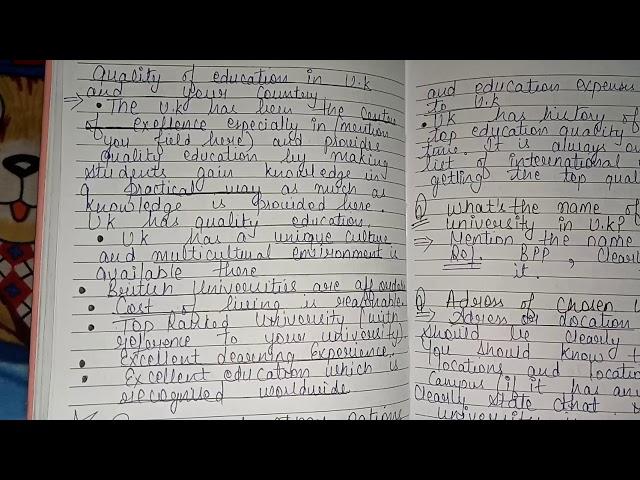 Quality of education in U.K
and your country
⇒ • The U.K has been the centre
of exellence especially in (mention
you field here) and provide
quality education by making
students gain knowledge in
a practical way as much as
knowledge is provided here.
UK has quality education.
• UK has a unique culture
and multicultural environment is
available there
• British Universities are affordable
• Cost of living is reasonable.
• TOP Ranked University (with
reference to your university)
• Excellent learning experience.
• Excellent education which is
recognised worldwide
and education expenses
to U.K
• UK has history of
top education quality
time. It is always
list of international
getting the top
Q What's the name of
university in U.K?
⇒ Mention the name
BPP, clearly
it.
Q Adress of chosen
⇒ Adress or location
should be clearly
You should know
locations and
Campus (if it has any
clearly state that